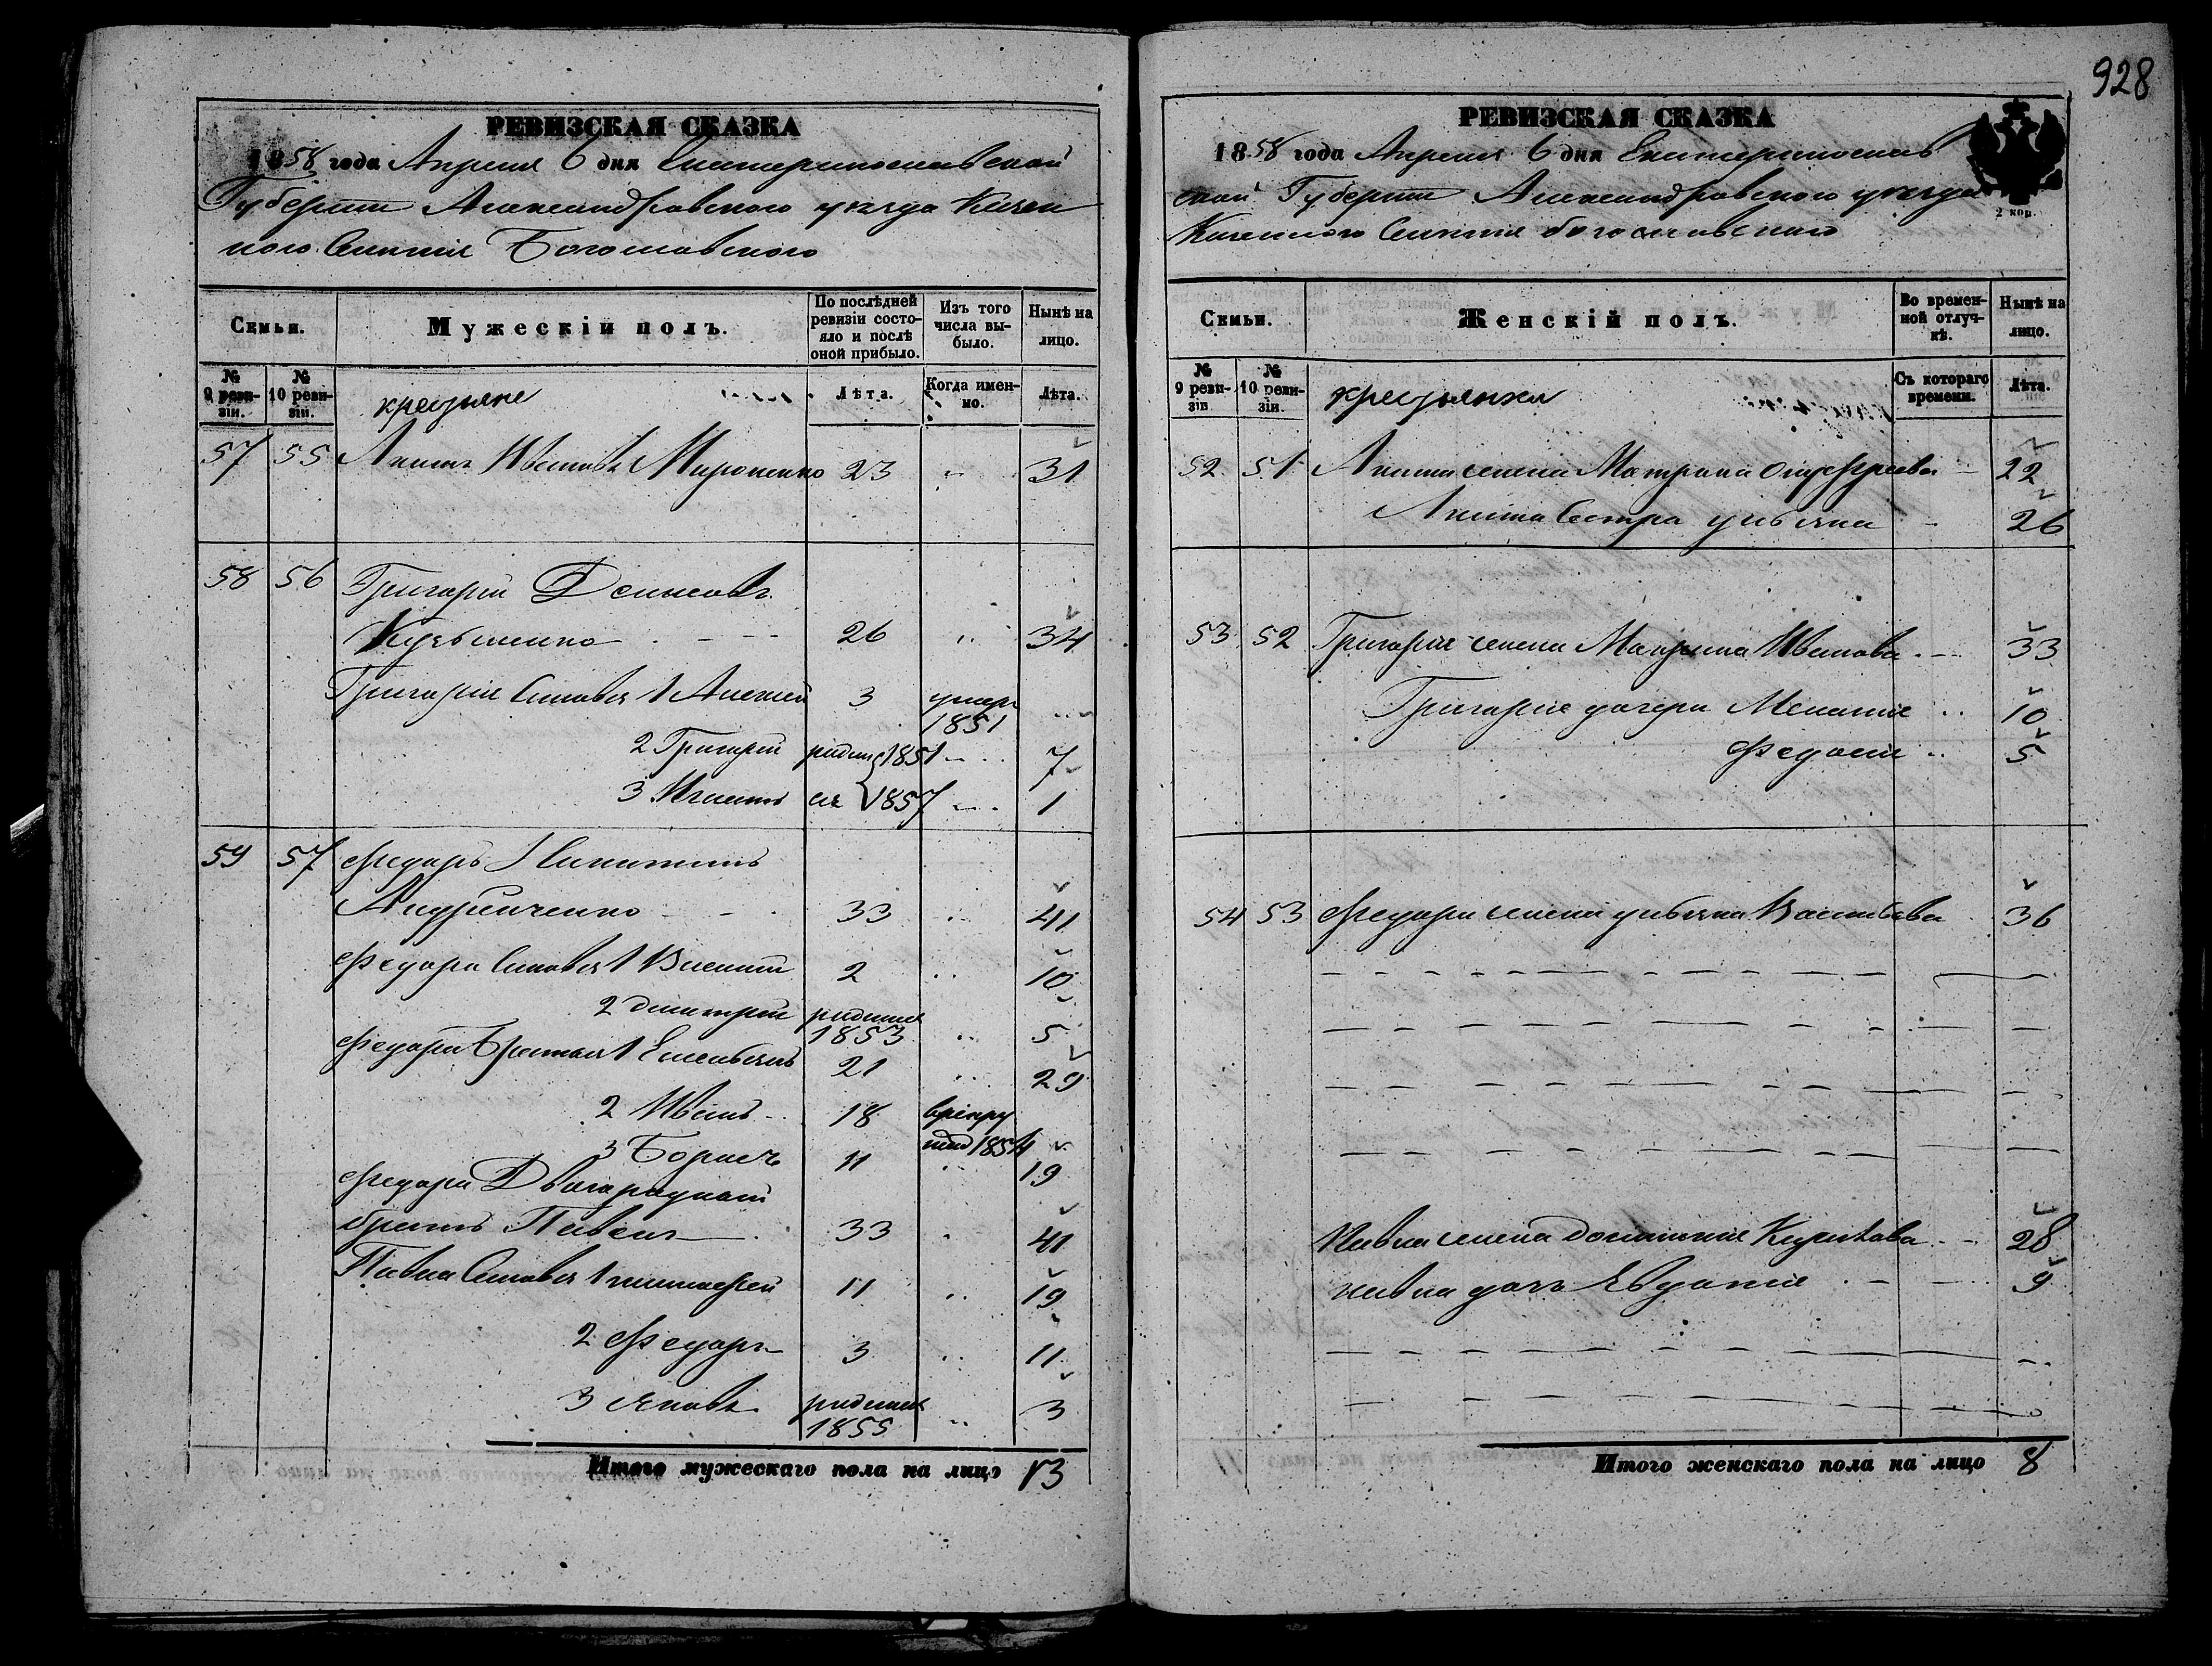 928
РЕВИЗСКАЯ СКАЗКА
1858 года Апреля 6 дня Екатеринославской
Губернии Александровского уезда Казен
ного Селения Богословского
Семьи.
Мужескій полъ.
По послѣдней ревизіи состояло и послѣ оной прибыло.
Изъ того числа выбыло.
Нынѣ на лицо.
№ 9 ревизіи.
№ 10 ревизіи.
крестьяне
Лѣта.
Когда именно.
Лѣта.
57 55 Иванов Мироненко 23 31
58 56 Григорій Денисовъ
26 34
Григорія Сыновья 1 Алексей 3 умер 1851
2 Григорій родил 1851 7
3 Игнатъ ся 1857 1
59 57 Федоръ Никитинъ
Андрийченко 33 41
Федора Сыновья 1 Василий 2 10
2 димитрий родился 1853 5
Федора Братья 1 Емельянъ 21 29
2 Иванъ 18 в рекру 1854
3 Борисъ 11 19
Федора Двоюродный
братъ Павелъ 33 41
Павла Сыновья 1 тимофей 11 19
2 Федоръ 3 11
3 Яковъ родился 1855 3
Итого мужескаго пола на лицо 13
РЕВИЗСКАЯ СКАЗКА
1858 года Апреля 6 дня Екатеринослав
ской Губернии Александровского уезда
Казенного Селения богословского
2 коп.
Семьи.
Женскій полъ.
Во временной отлучкѣ.
Нынѣ на лицо.
№ 9 ревизіи.
№ 10 ревизіи.
крестьянки
Съ котораго времени.
Лѣта.
52 51 жена Матрона 22
Сестра ульяна 26
53 52 Григорія жена Иванова 33
Григорія дочери Мелания 10
5
54 53 Федора жена ульяна Васильева 36
Павла жена 28
павла дочь Евдокия 9
Итого женскаго пола на лицо 8